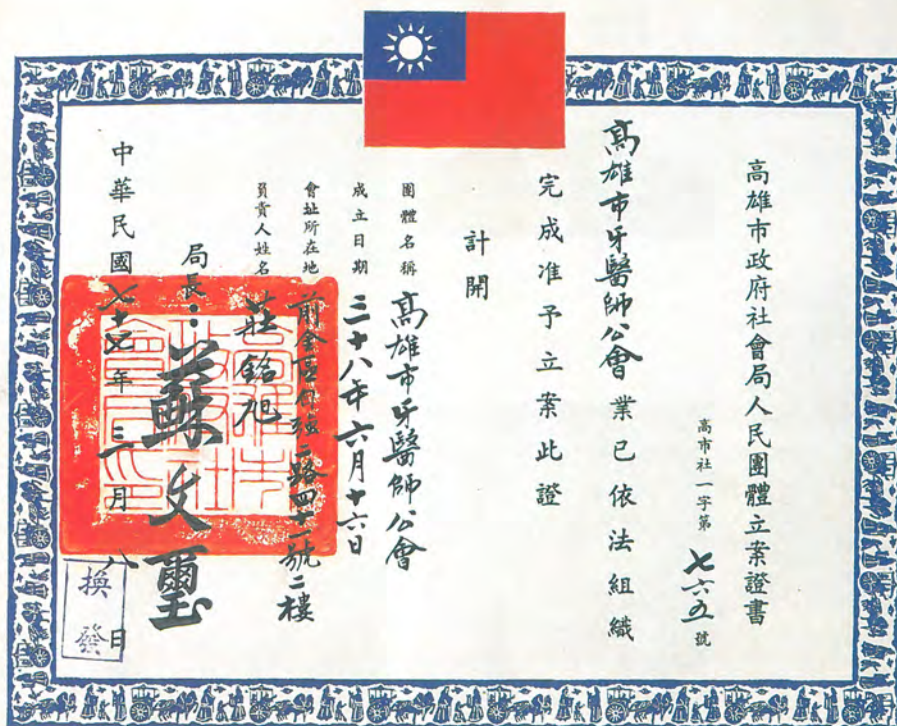 高雄市政府社會局人民團體立案證書
高市社一字第七六五號
高雄市牙醫師公會業已依法組織
完成准予立案此證
計開
團體名稱 高雄市牙醫師公會
成立日期 三十八年六月十六日
會址所在地 前金區自強二路四十一號二樓
負責人姓名 莊銘旭
局長：蘇文璽
中華民國七十七年三月八日
換發